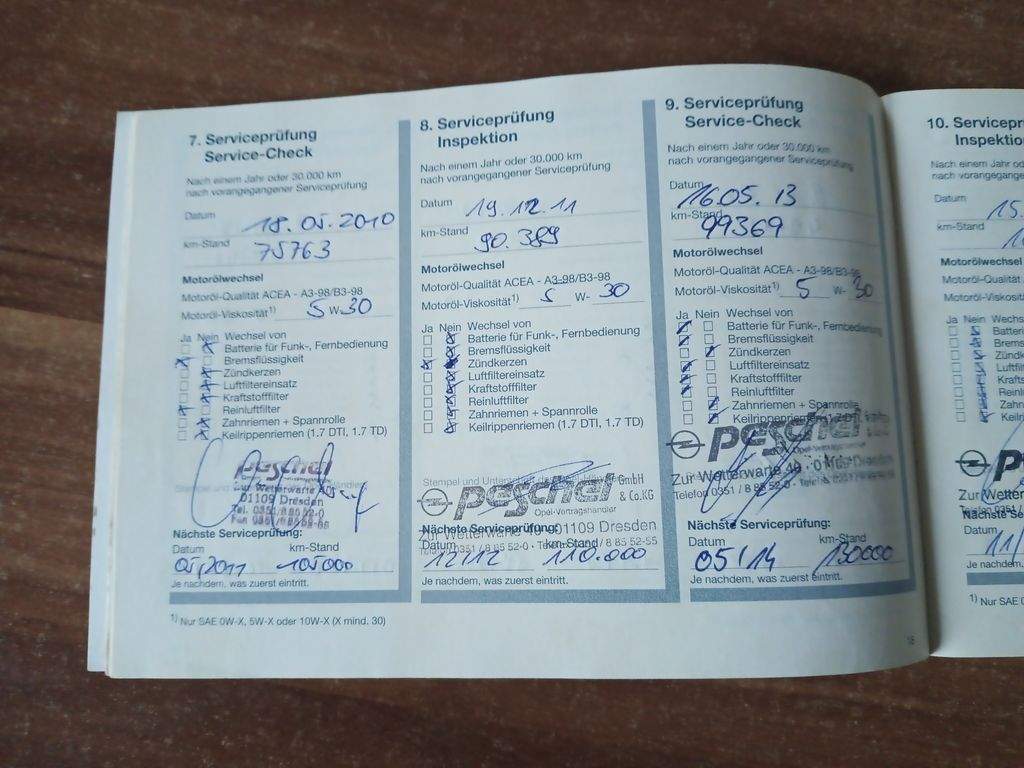 7. Serviceprüfung
Service-Check
Nach einem Jahr oder 30.000 km
nach vorangegangener Serviceprüfung
Datum 18.05.2010
km-Stand 75763
Motorölwechsel
Motoröl-Qualität ACEA - A3-98/B3-98
Motoröl-Viskosität1) 5 W- 30
Ja Nein Wechsel von
Batterie für Funk-, Fernbedienung
Bremsflüssigkeit
Zündkerzen
Luftfiltereinsatz
Kraftstofffilter
Reinluftfilter
Zahnriemen + Spannrolle
Keilrippenriemen (1.7 DTI, 1.7 TD)
peschel
Zur Wetterwarte
01109 Dresden
Tel. 0351/8 85 52-0
Fax 0351/8 85 52-55
Nächste Serviceprüfung:
Datum km-Stand
05/2011 105000
Je nachdem, was zuerst eintritt.
1) Nur SAE 0W-X, 5W-X oder 10W-X (X mind. 30)
8. Serviceprüfung
Inspektion
Nach einem Jahr oder 30.000 km
nach vorangegangener Serviceprüfung
Datum 19.12.11
km-Stand 90.389
Motorölwechsel
Motoröl-Qualität ACEA - A3-98/B3-98
Motoröl-Viskosität1) 5 W- 30
Ja Nein Wechsel von
Batterie für Funk-, Fernbedienung
Bremsflüssigkeit
Zündkerzen
Luftfiltereinsatz
Kraftstofffilter
Reinluftfilter
Zahnriemen + Spannrolle
Keilrippenriemen (1.7 DTI, 1.7 TD)
peschel GmbH
& Co.KG
Opel-Vertragshändler
Zur Wetterwarte 40 · 01109 Dresden
Telefon 0351 / 8 85 52-0 · Telefax 0351 / 8 85 52-55
Nächste Serviceprüfung:
Datum km-Stand
12/12 110.000
Je nachdem, was zuerst eintritt.
9. Serviceprüfung
Service-Check
Nach einem Jahr oder 30.000 km
nach vorangegangener Serviceprüfung
Datum 16.05.13
km-Stand 99369
Motorölwechsel
Motoröl-Qualität ACEA - A3-98/B3-98
Motoröl-Viskosität1) 5 W- 30
Ja Nein Wechsel von
Batterie für Funk-, Fernbedienung
Bremsflüssigkeit
Zündkerzen
Luftfiltereinsatz
Kraftstofffilter
Reinluftfilter
Zahnriemen + Spannrolle
Keilrippenriemen (1.7 DTI, 1.7 TD)
peschel
Zur Wetterwarte 40 · 01109 Dresden
Telefon 0351 / 8 85 52-0
Nächste Serviceprüfung:
Datum km-Stand
05/14 130000
Je nachdem, was zuerst eintritt.
10. Servicepr
Inspektio
Nach einem Jahr od
nach vorangegange
Datum 15.
km-Stand
Motorölwechsel
Motoröl-Qualität
Motoröl-Viskosi
Ja Nein Wechs
Batte
Brems
Zündk
Luftf
Kraft
Reinl
Zahn
Keilr
Zur Wetter
Telefon 0351
Nächste Se
Datum
11/
Je nachdem,
1) Nur SAE 0